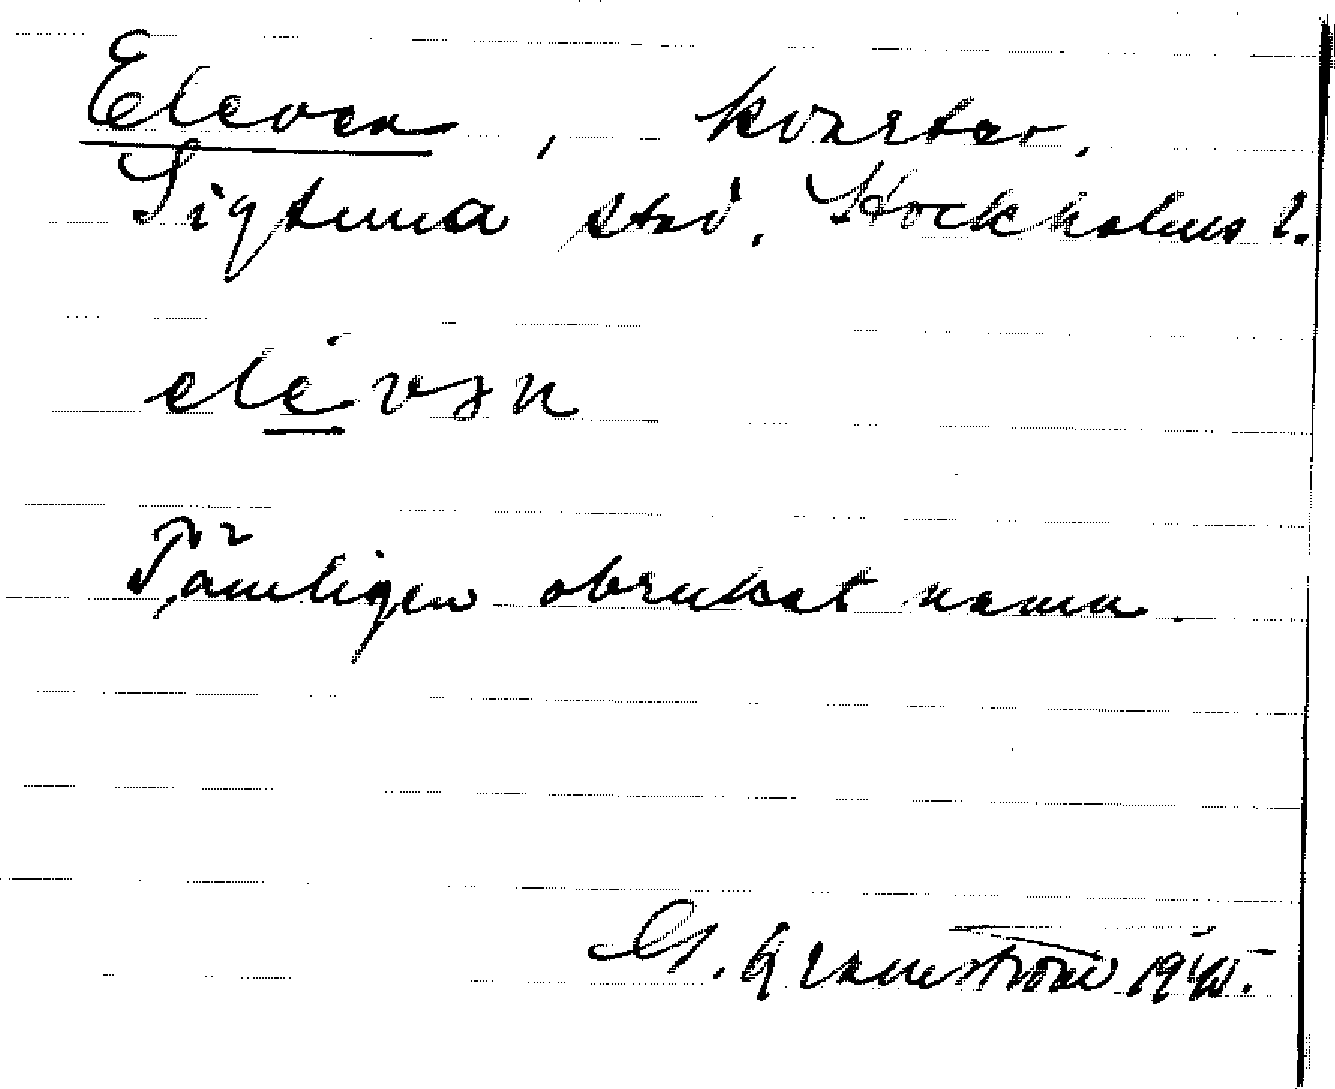 Eleven, kvarter.
Sigtuna stad, Stockholms l.
elévən
Tämligen obrukat namn.
G. Granström 1940.